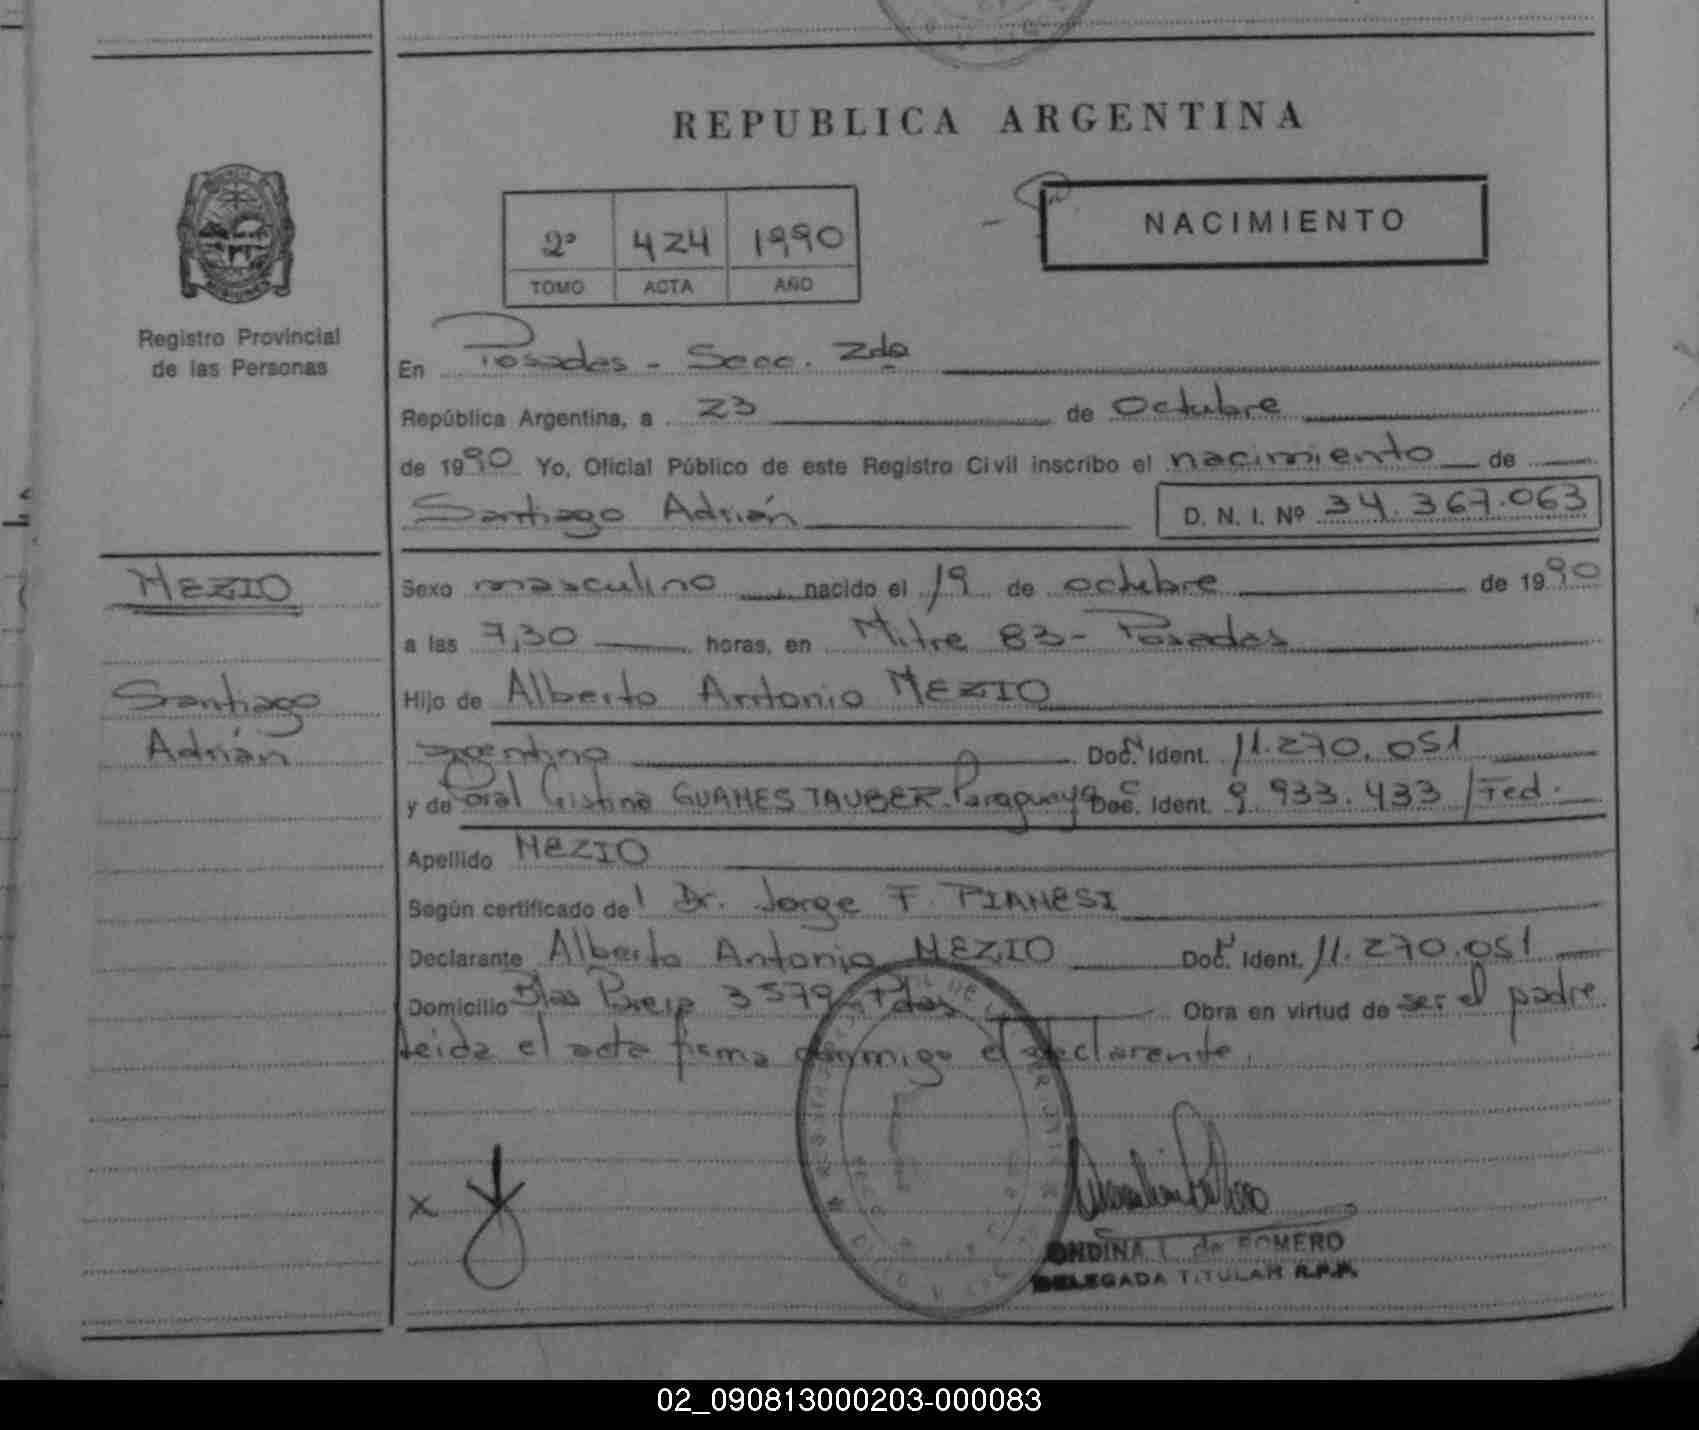 REPUBLICA ARGENTINA
NACIMIENTO
2º 424 1990
TOMO ACTA AÑO
Registro Provincial
de las Personas
En Posadas - Secc. 2da
República Argentina, a 23 de Octubre
de 1990 Yo, Oficial Público de este Registro Civil inscribo el nacimiento de
Santiago Adrián D. N. I. Nº 34.367.063
MEZIO
Santiago
Adrián
Sexo masculino nacido el 19 de octubre de 1990
a las 7,30 horas, en Mitre 83 - Posadas
Hijo de Alberto Antonio MEZIO
argentino Doc. Ident. 11.270.051
y de Cristina TAUBER. Paraguaya Doc. Ident. 9.933.433 / Fed.
Apellido MEZIO
Según certificado del Dr. Jorge F. PIANESI
Declarante Alberto Antonio MEZIO Doc. Ident. 11.270.051
Domicilio Blas Parera 3579 - Pdas Obra en virtud de ser el padre
Leida el acta firma conmigo el declarante.
X
ONDINA L. de ROMERO
DELEGADA TITULAR R.P.P.
02_090813000203-000083